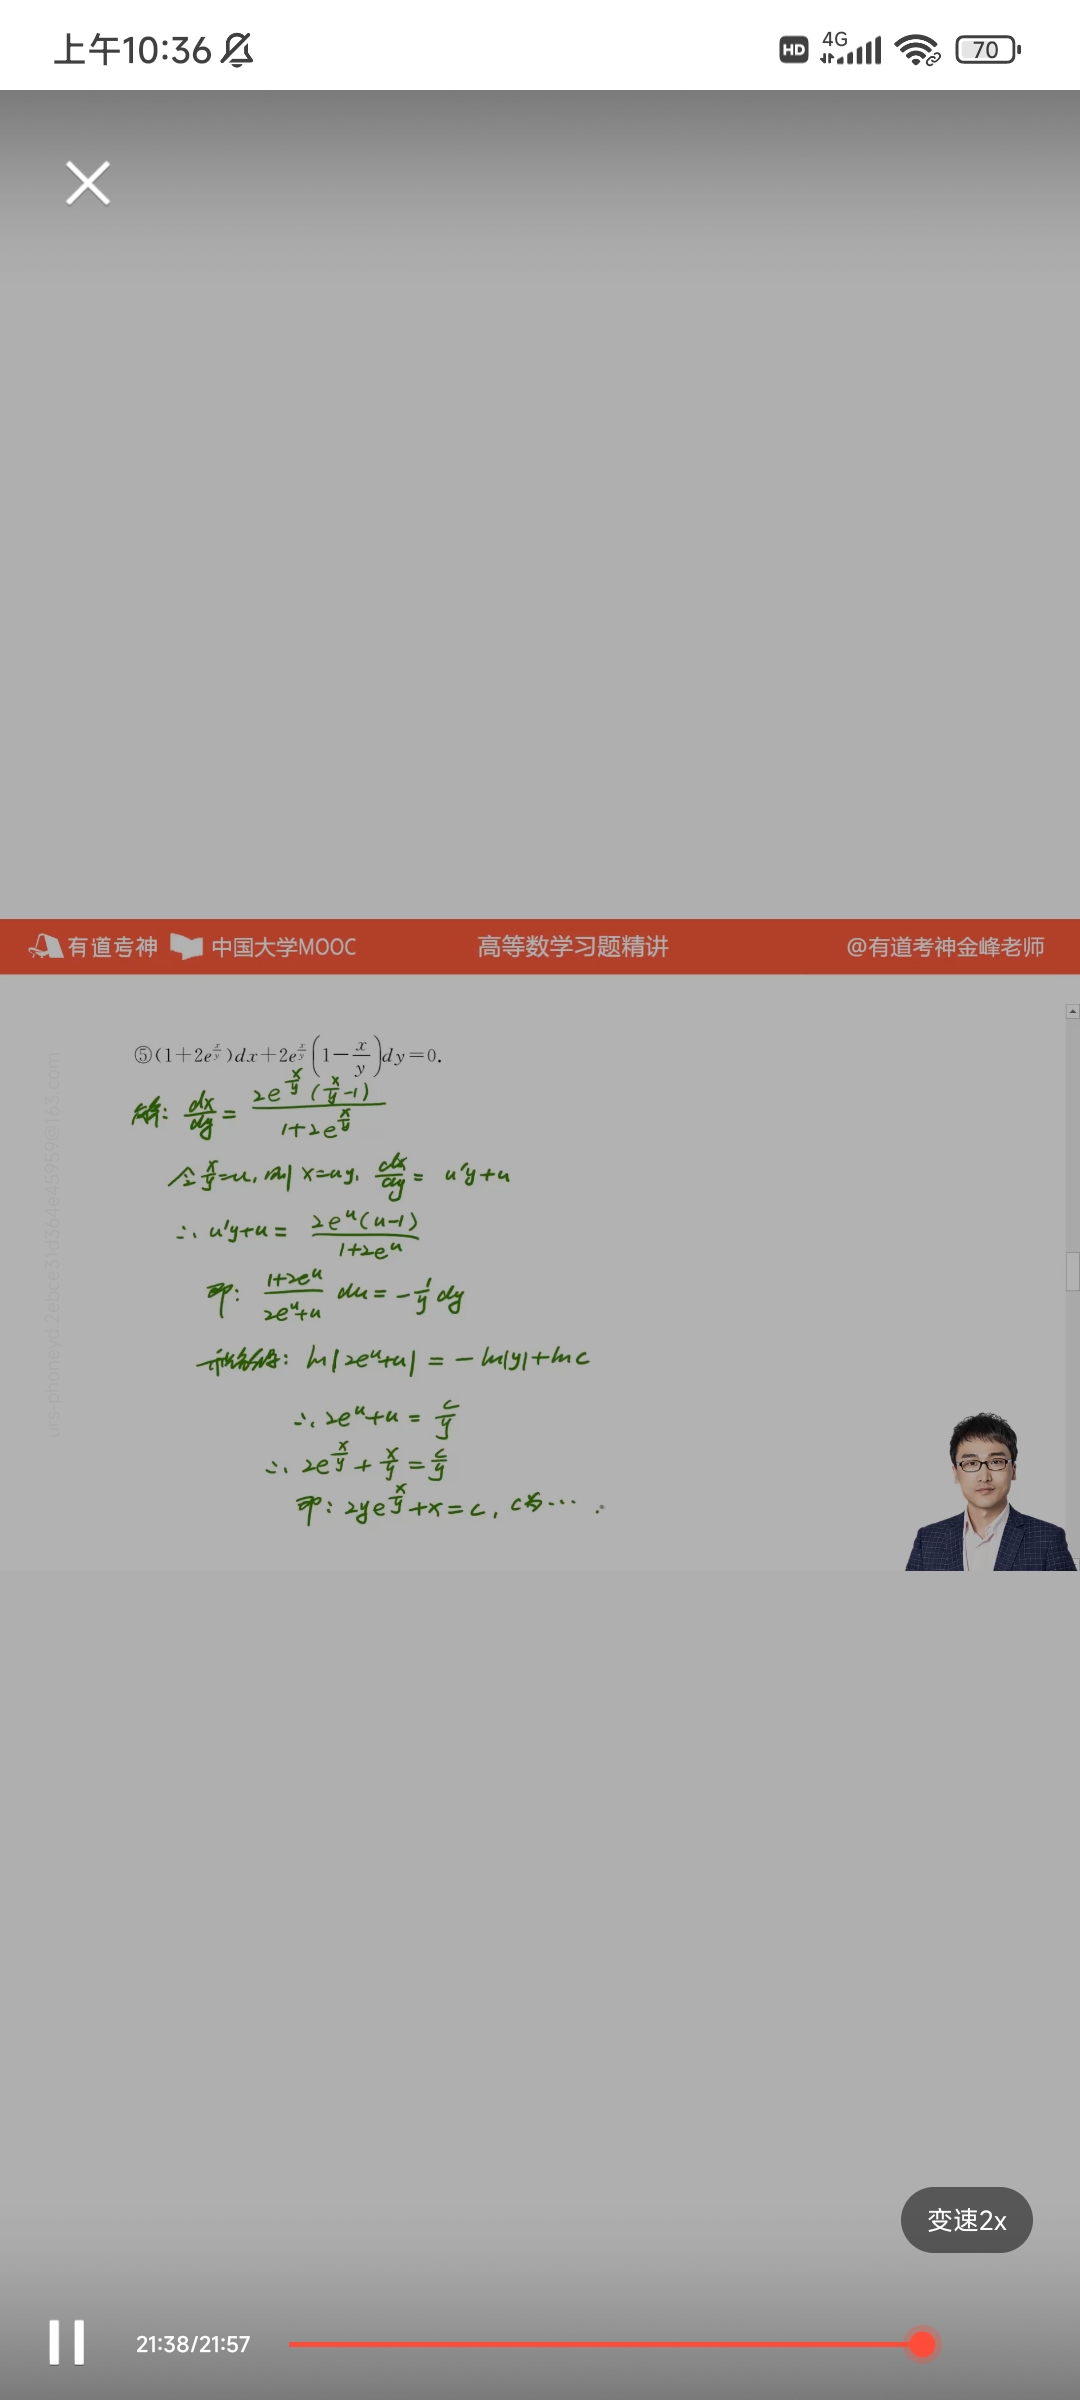 上午10:36 HD 4G 70
有道考神 中国大学MOOC 高等数学习题精讲 @有道考神金峰老师
⑤(1+2e^{x/y})dx+2e^{x/y}(1-x/y)dy=0.
解: dx/dy = 2e^{x/y}(x/y-1)/(1+2e^{x/y})
令x/y=u, 则x=uy, dx/dy = u'y+u
∴ u'y+u = 2e^u(u-1)/(1+2e^u)
即: (1+2e^u)/(2e^u+u) du = -1/y dy
ln|2e^u+u| = -ln|y|+lnc
∴ 2e^u+u = c/y
∴ 2e^{x/y} + x/y = c/y
即: 2ye^{x/y}+x=c, c为…
变速2x
21:38/21:57